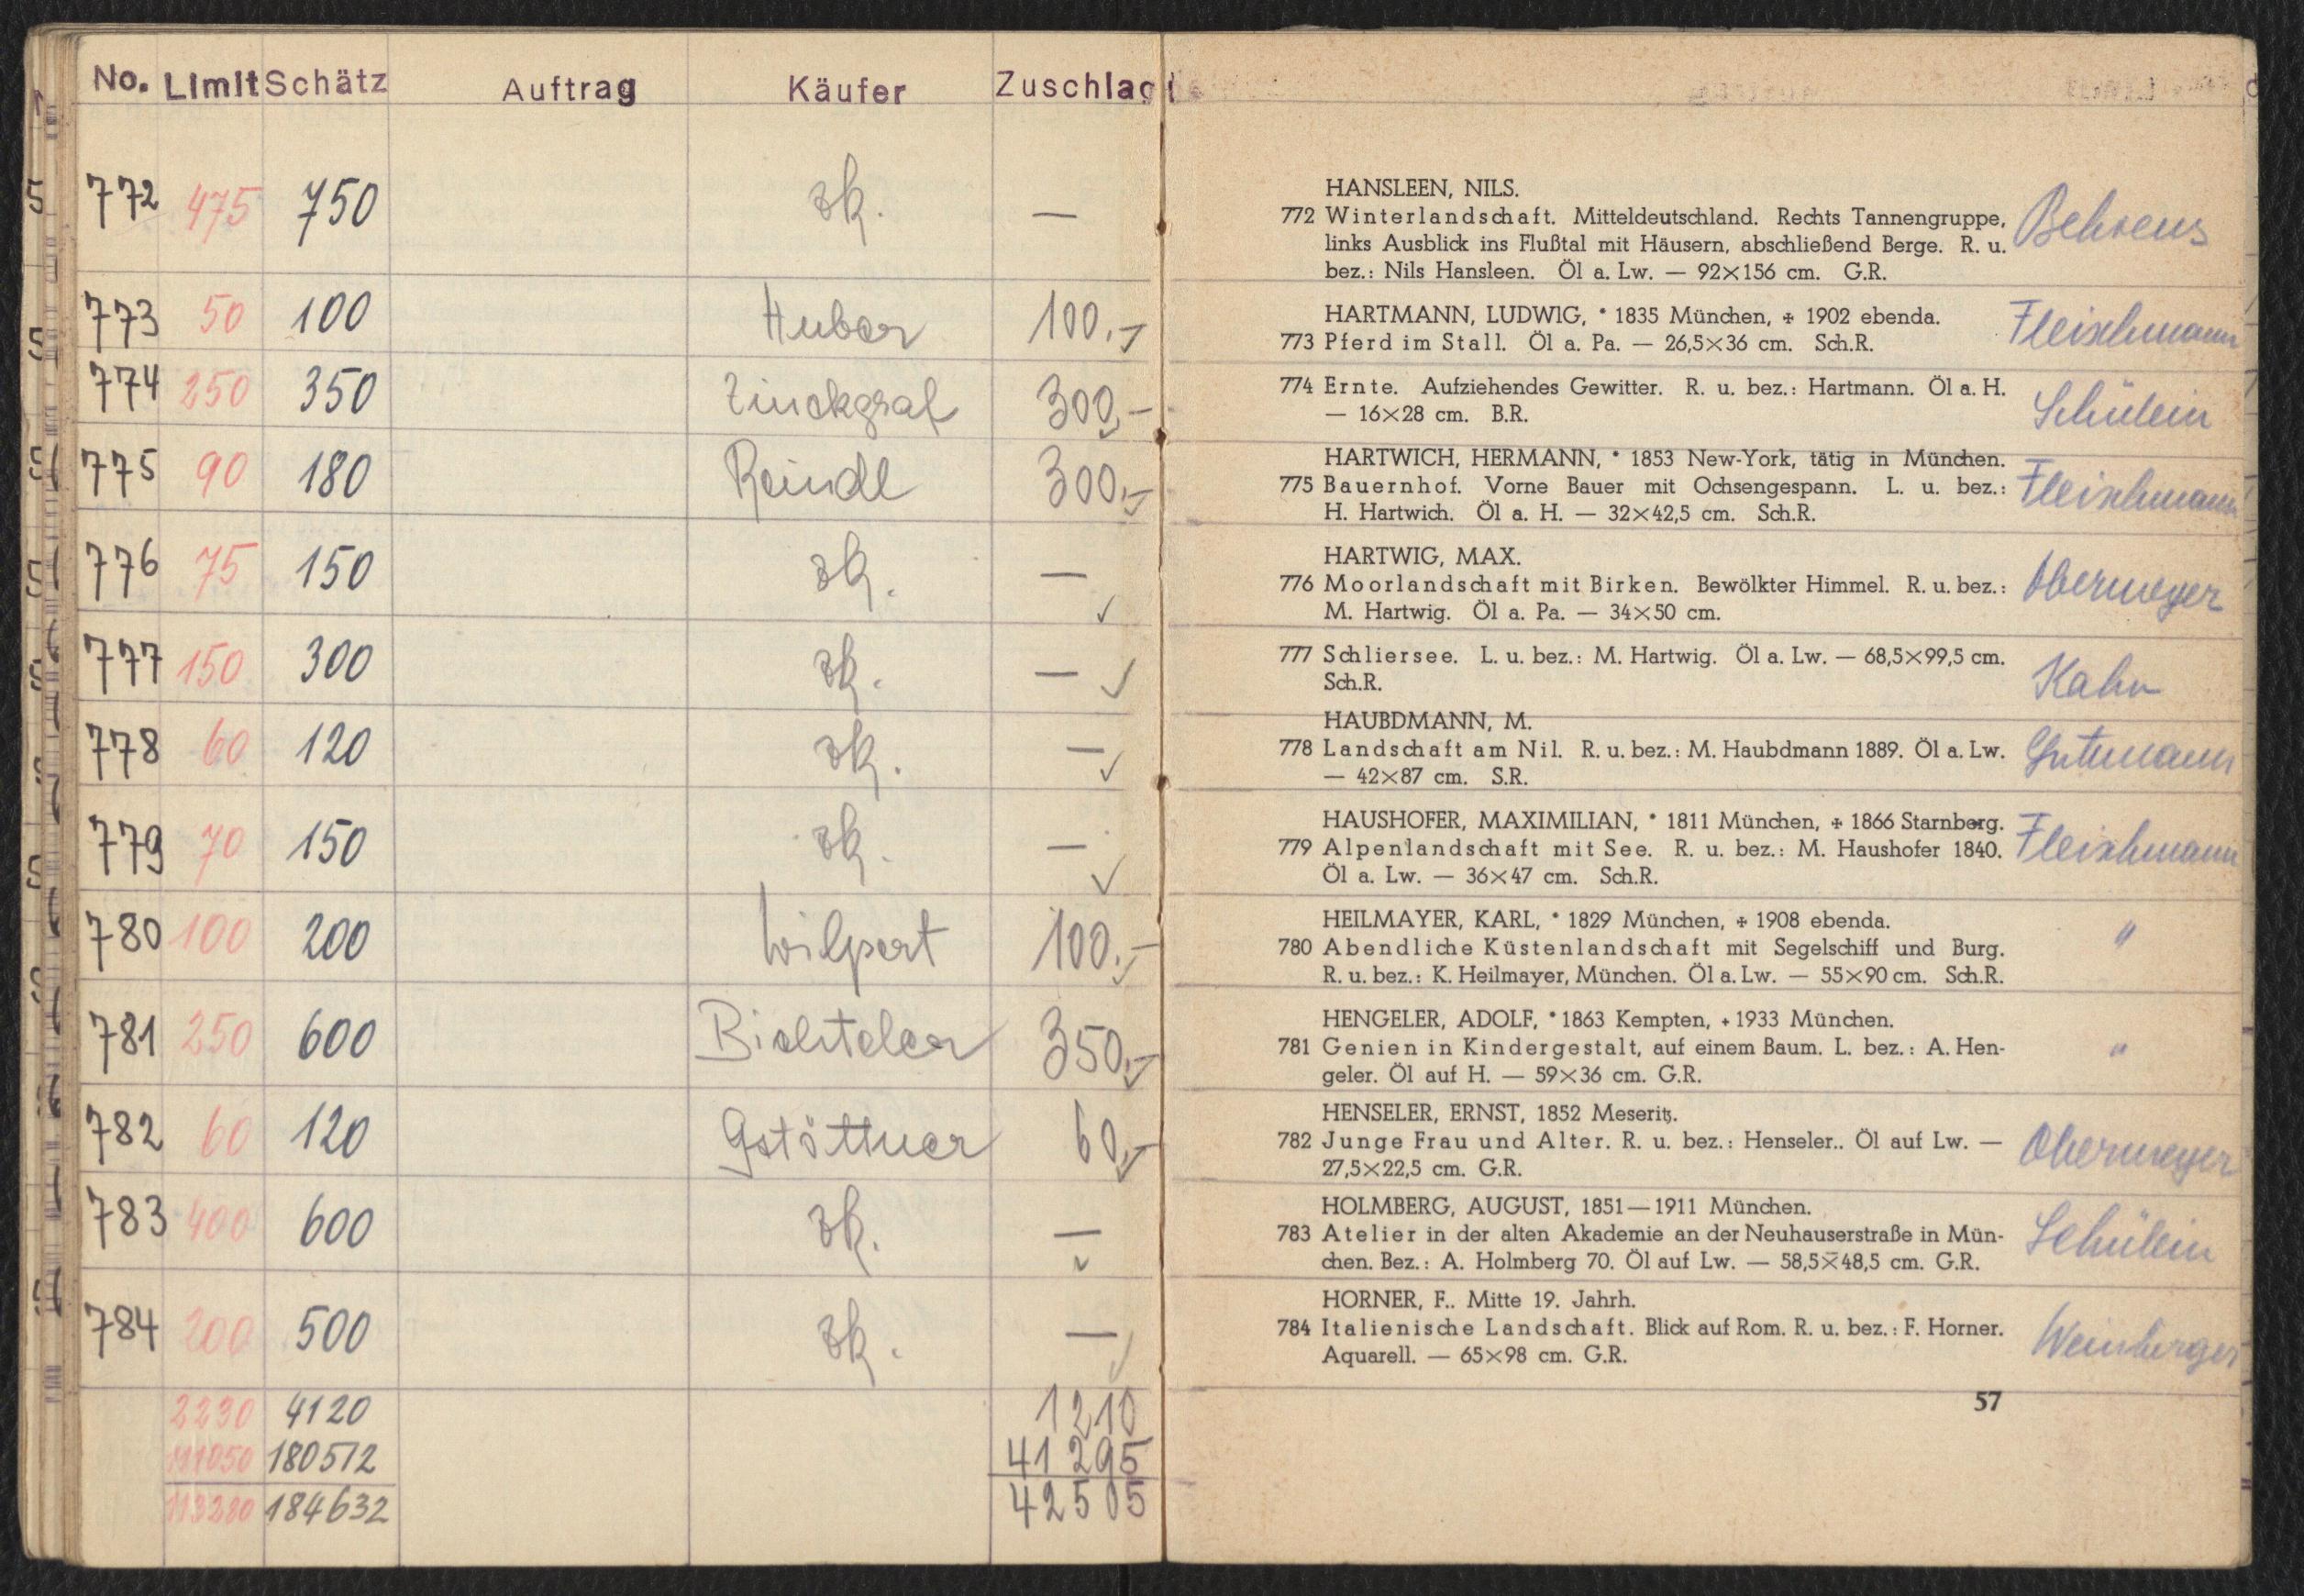 No. Limit Schätz Auftrag Käufer Zuschlag
772 475 750 zk. —
773 50 100 Huber 100.-
774 250 350 Zinckgraf 300.-
775 90 180 Reindl 300.-
776 75 150 zk. —
777 150 300 zk. —
778 60 120 zk. —
779 70 150 zk. —
780 100 200 Wilpert 100.-
781 250 600 Bichteler 350.-
782 60 120 Gstöttner 60.-
783 400 600 zk. —
784 200 500 zk. —
2230 4120 1210
111050 180512 41295
113280 184632 42505
HANSLEEN, NILS.
772 Winterlandschaft. Mitteldeutschland. Rechts Tannengruppe, Behrens
links Ausblick ins Flußtal mit Häusern, abschließend Berge. R. u.
bez.: Nils Hansleen. Öl a. Lw. — 92×156 cm. G.R.
HARTMANN, LUDWIG, * 1835 München, ✢ 1902 ebenda. Fleischmann
773 Pferd im Stall. Öl a. Pa. — 26,5×36 cm. Sch.R.
774 Ernte. Aufziehendes Gewitter. R. u. bez.: Hartmann. Öl a. H. Schülein
— 16×28 cm. B.R.
HARTWICH, HERMANN, * 1853 New-York, tätig in München.
775 Bauernhof. Vorne Bauer mit Ochsengespann. L. u. bez.: Fleischmann
H. Hartwich. Öl a. H. — 32×42,5 cm. Sch.R.
HARTWIG, MAX.
776 Moorlandschaft mit Birken. Bewölkter Himmel. R. u. bez.: Obermeyer
M. Hartwig. Öl a. Pa. — 34×50 cm.
777 Schliersee. L. u. bez.: M. Hartwig. Öl a. Lw. — 68,5×99,5 cm. Kahn
Sch.R.
HAUBDMANN, M.
778 Landschaft am Nil. R. u. bez.: M. Haubdmann 1889. Öl a. Lw. Gutmann
— 42×87 cm. S.R.
HAUSHOFER, MAXIMILIAN, * 1811 München, ✢ 1866 Starnberg.
779 Alpenlandschaft mit See. R. u. bez.: M. Haushofer 1840. Fleischmann
Öl a. Lw. — 36×47 cm. Sch.R.
HEILMAYER, KARL, * 1829 München, ✢ 1908 ebenda.
780 Abendliche Küstenlandschaft mit Segelschiff und Burg. "
R. u. bez.: K. Heilmayer, München. Öl a. Lw. — 55×90 cm. Sch.R.
HENGELER, ADOLF, * 1863 Kempten, + 1933 München.
781 Genien in Kindergestalt, auf einem Baum. L. bez.: A. Hen- "
geler. Öl auf H. — 59×36 cm. G.R.
HENSELER, ERNST, 1852 Meseritz.
782 Junge Frau und Alter. R. u. bez.: Henseler.. Öl auf Lw. — Obermeyer
27,5×22,5 cm. G.R.
HOLMBERG, AUGUST, 1851—1911 München.
783 Atelier in der alten Akademie an der Neuhauserstraße in Mün- Schülein
chen. Bez.: A. Holmberg 70. Öl auf Lw. — 58,5×48,5 cm. G.R.
HORNER, F.. Mitte 19. Jahrh.
784 Italienische Landschaft. Blick auf Rom. R. u. bez.: F. Horner. Weinberger
Aquarell. — 65×98 cm. G.R.
57